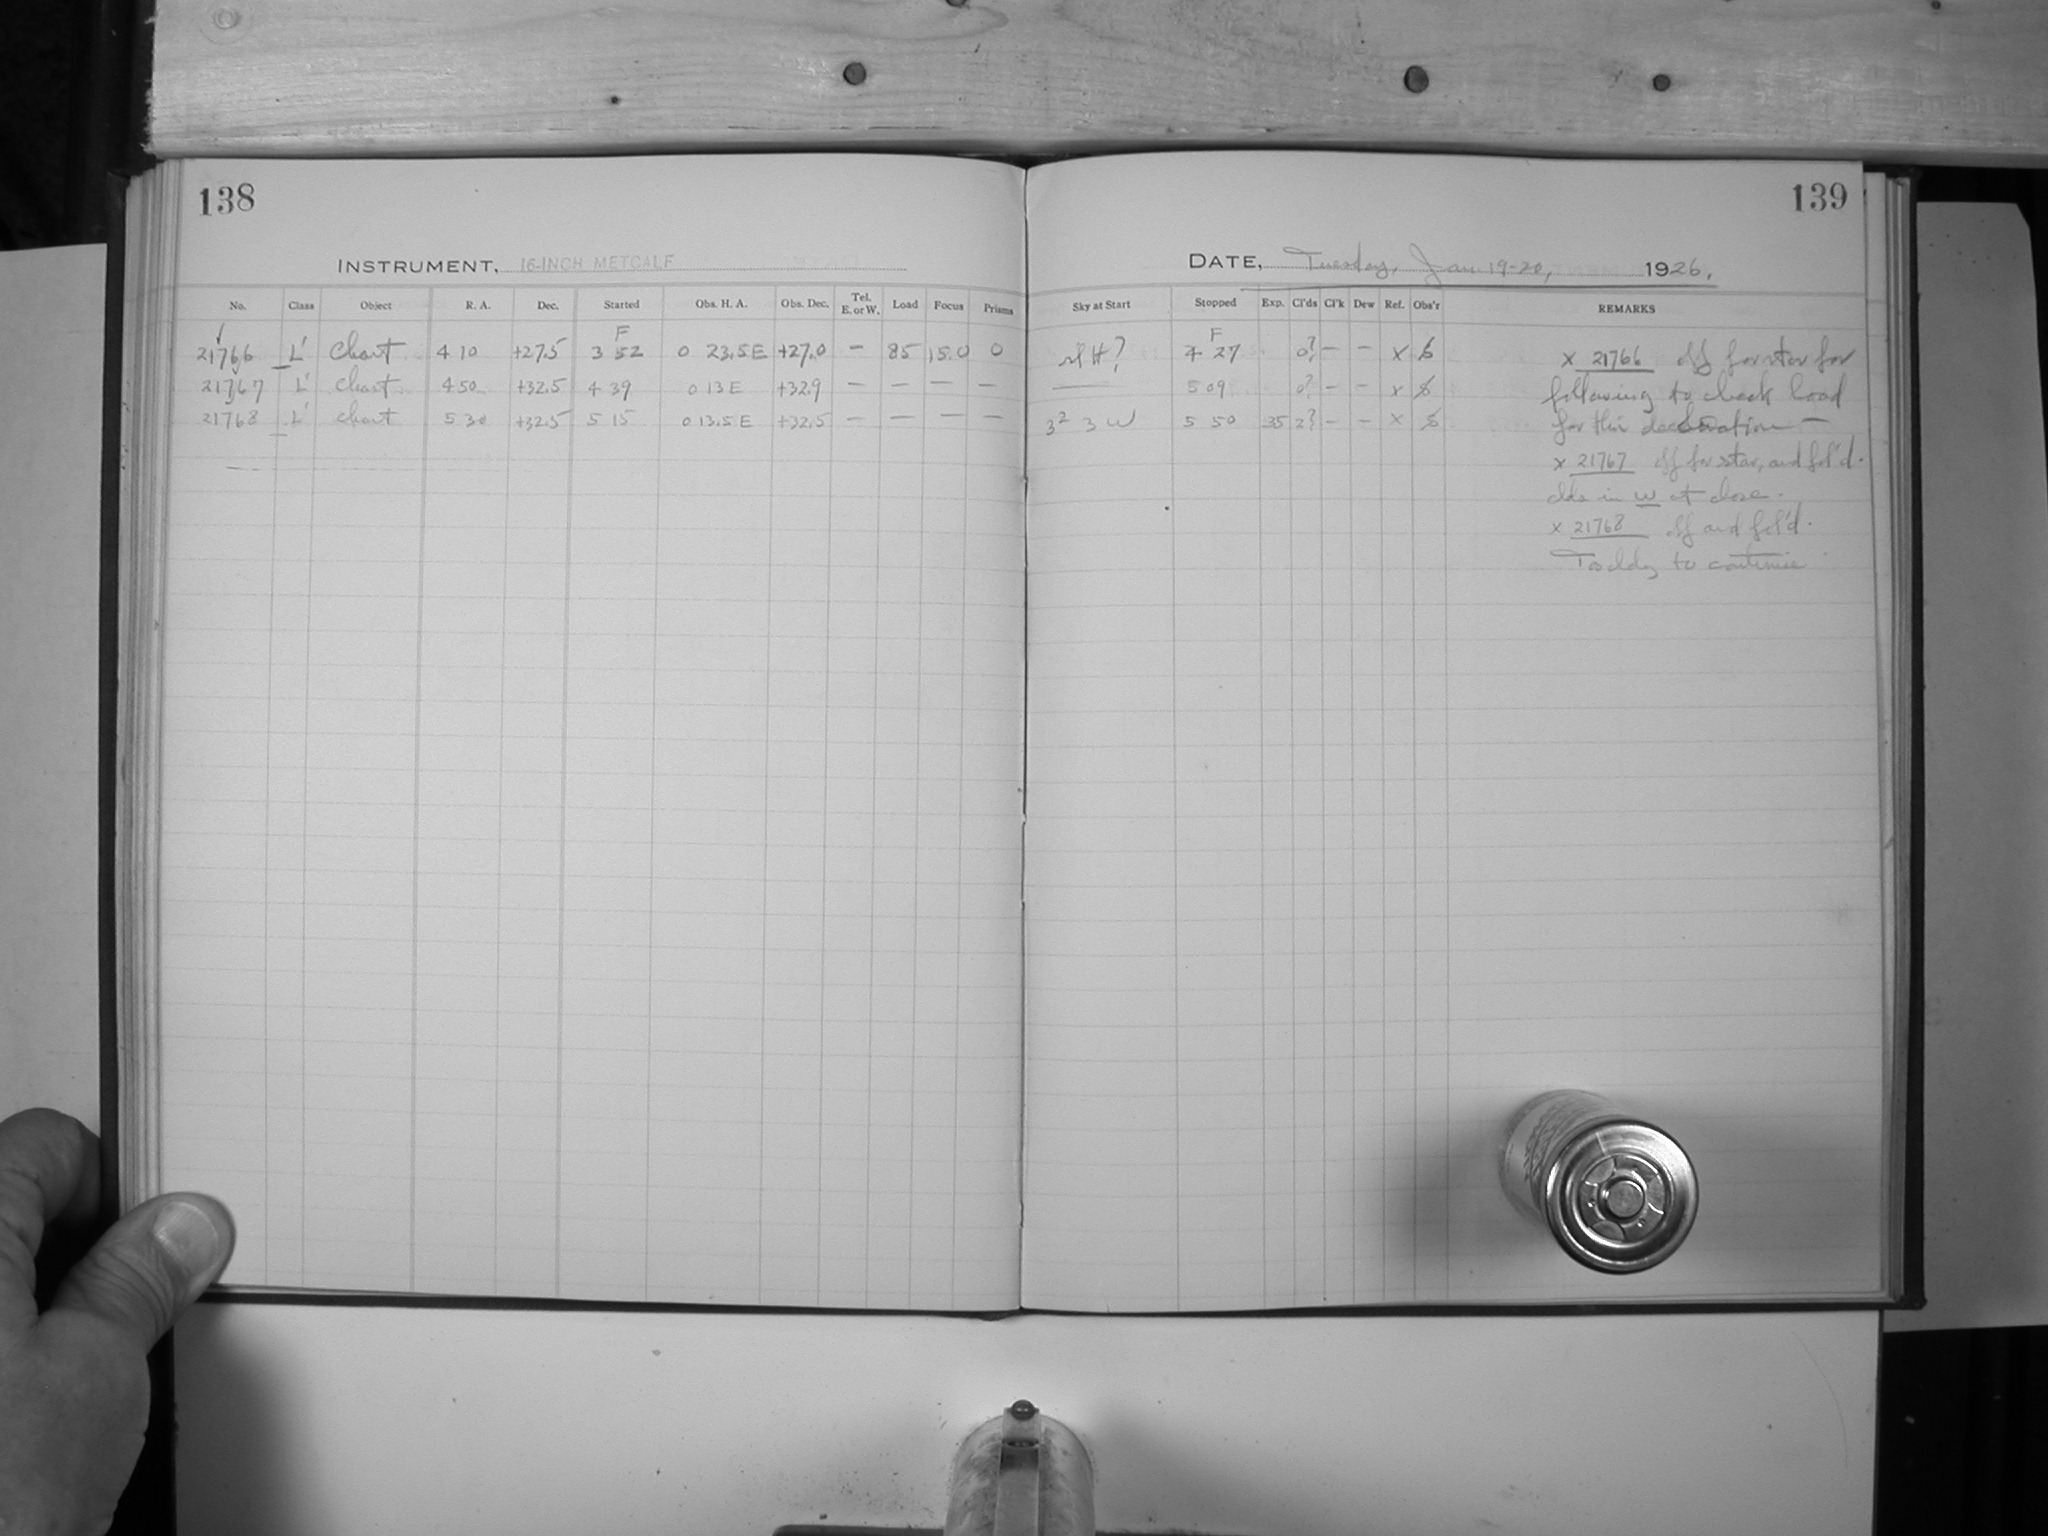 138
139
INSTRUMENT, 16-INCH METCALF
DATE, Tuesday, Jan. 19-20, 1926.
No. Class Object R. A. Dec. Started Obs. H. A. Obs. Dec. Tel. E. or W. Load Focus Prisms Sky at Start Stopped Exp. Cl'ds Cl'k Dew Ref. Obs'r REMARKS
F F
21766 L' Chart 4 10 +27.5 3 52 0 23.5 E +27.0 — 85 15.0 0 4 27 0? — — x
21767 L' Chart 4 50 +32.5 4 39 0 13 E +32.9 — — — — 5 09 0? — — x
21768 L' Chart 5 30 +32.5 5 15 0 13.5 E +32.5 — — — — 3² 3 W 5 50 35 2? — — x
x 21766 off for star for
following to check load
for this declination —
x 21767 off for star, and fol'd.
clds in W at close.
x 21768 off and fol'd.
Toddy to continue